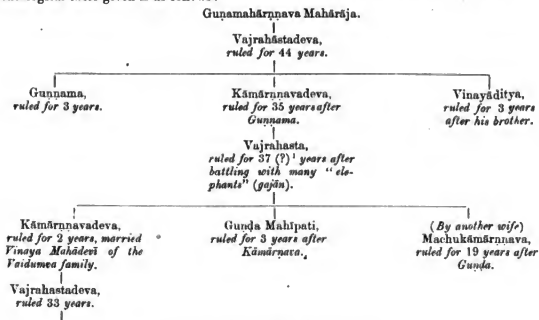 Guṇamahārṇṇava Mahārāja.
Vajrahāstadeva,
ruled for 44 years.
Guṇṇama,
ruled for 3 years.
Kāmārṇṇavadeva,
ruled for 35 years after
Guṇṇama.
Vinayāditya,
ruled for 3 years
after his brother.
Vajrahasta,
ruled for 37 (?) ¹ years after
battling with many "ele-
phants" (gajān).
Kāmārṇṇavadeva,
ruled for 2 years, married
Vinaya Mahādevī of the
Vaidumva family.
Guṇḍa Mahīpati,
ruled for 3 years after
Kāmārṇava.
(By another wife)
Machukāmārṇṇava,
ruled for 19 years after
Guṇḍa.
Vajrahastadeva,
ruled 33 years.